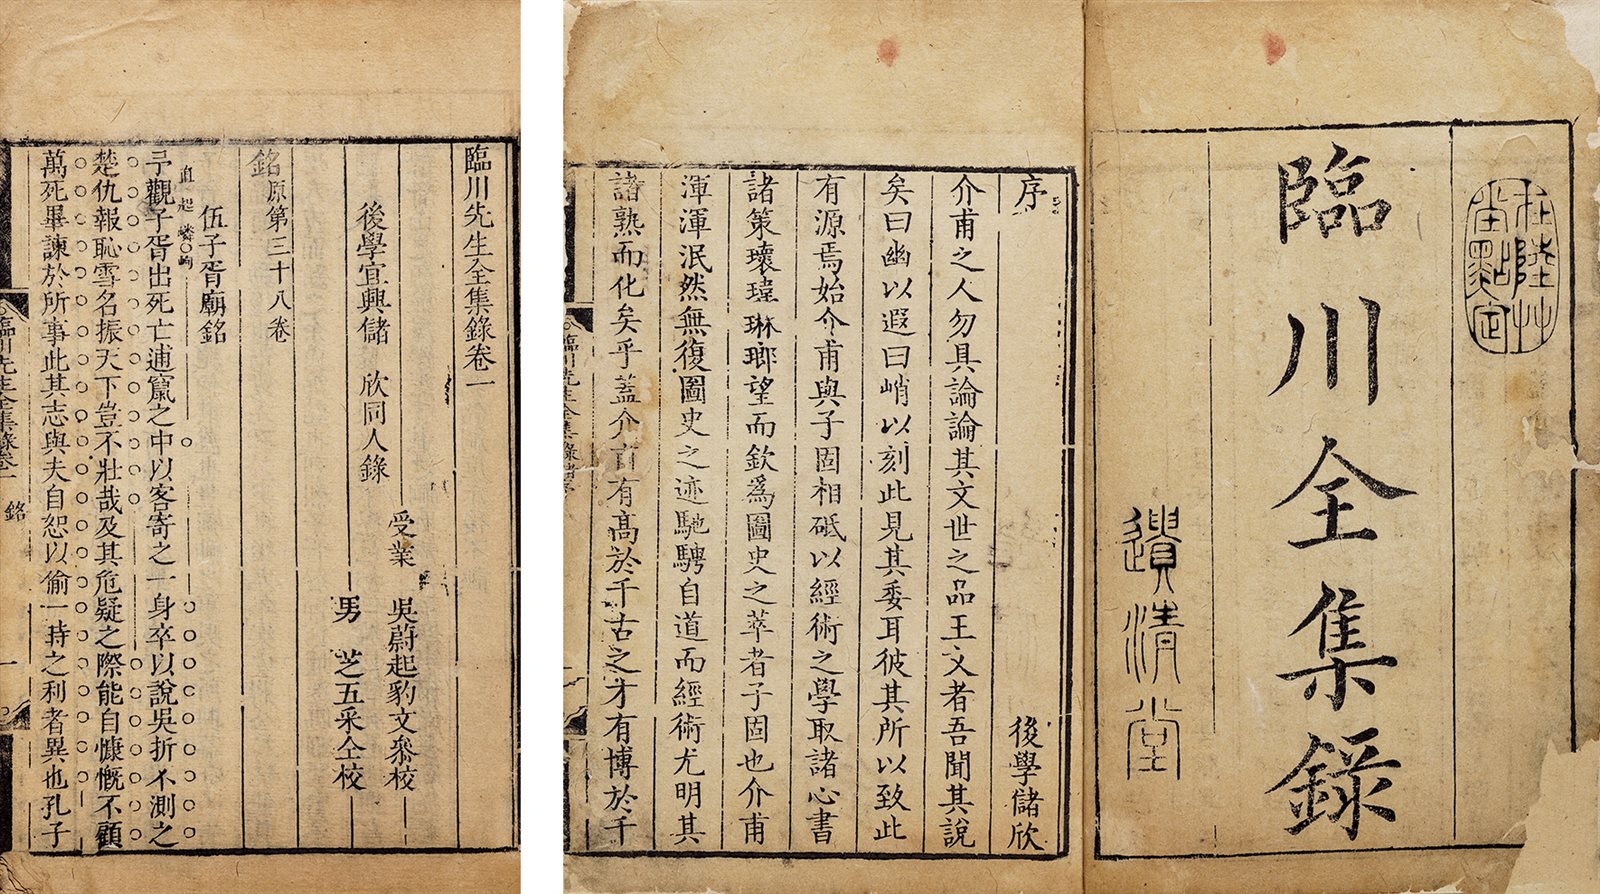 在陸艸
堂點定
臨川全集錄
遺清堂
序
後學儲欣
介甫之人勿具論論其文世之品王文者吾聞其說
矣曰幽以遐曰峭以刻此見其委耳彼其所以致此
有源焉始介甫與子固相砥以經術之學取諸心書
諸策瓌瑋琳瑯望而欽爲圖史之萃者子固也介甫
渾渾泯然無復圖史之迹馳騁自道而經術尤明其
諸熟而化矣乎蓋介甫有高於千古之才有博於千
臨川先生全集錄卷一
受業 吳蔚起豹文叅校
後學宜興儲 欣同人錄
男 芝五采仝校
銘原第三十八卷
伍子胥廟銘
予觀子胥出死亡逋竄之中以客寄之一身卒以說吳折不測之
楚仇報恥雪名振天下豈不壯哉及其危疑之際能自慷慨不顧
萬死畢諫於所事此其志與夫自恕以偷一時之利者異也孔子
臨川先生全集錄卷一 銘 一